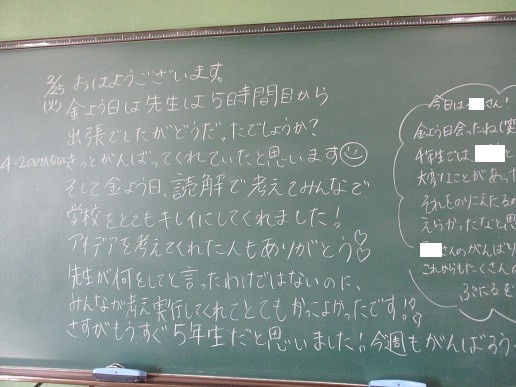 2/25
(火)
おはようございます。
金よう日は先生は5時間目から
出張でしたがどうだったでしょうか?
4-2のみんなならきっとがんばってくれていたと思います
そして金よう日、読解で考えてみんなで
学校をとてもキレイにしてくれました!
アイデアを考えてくれた人もありがとう♡
先生が何をしてと言ったわけではないのに、
みんなが考え実行してくれてとてもかっこよかったです!!
さすがもうすぐ5年生だと思いました!!今週もがんばろう
今日は さん!
金よう日会ったね(笑
4年生では、
大変なことがあった
それものりこえたるの
えらかったなと思
さんのがんばり
これからもたくさんの
ぶにるを